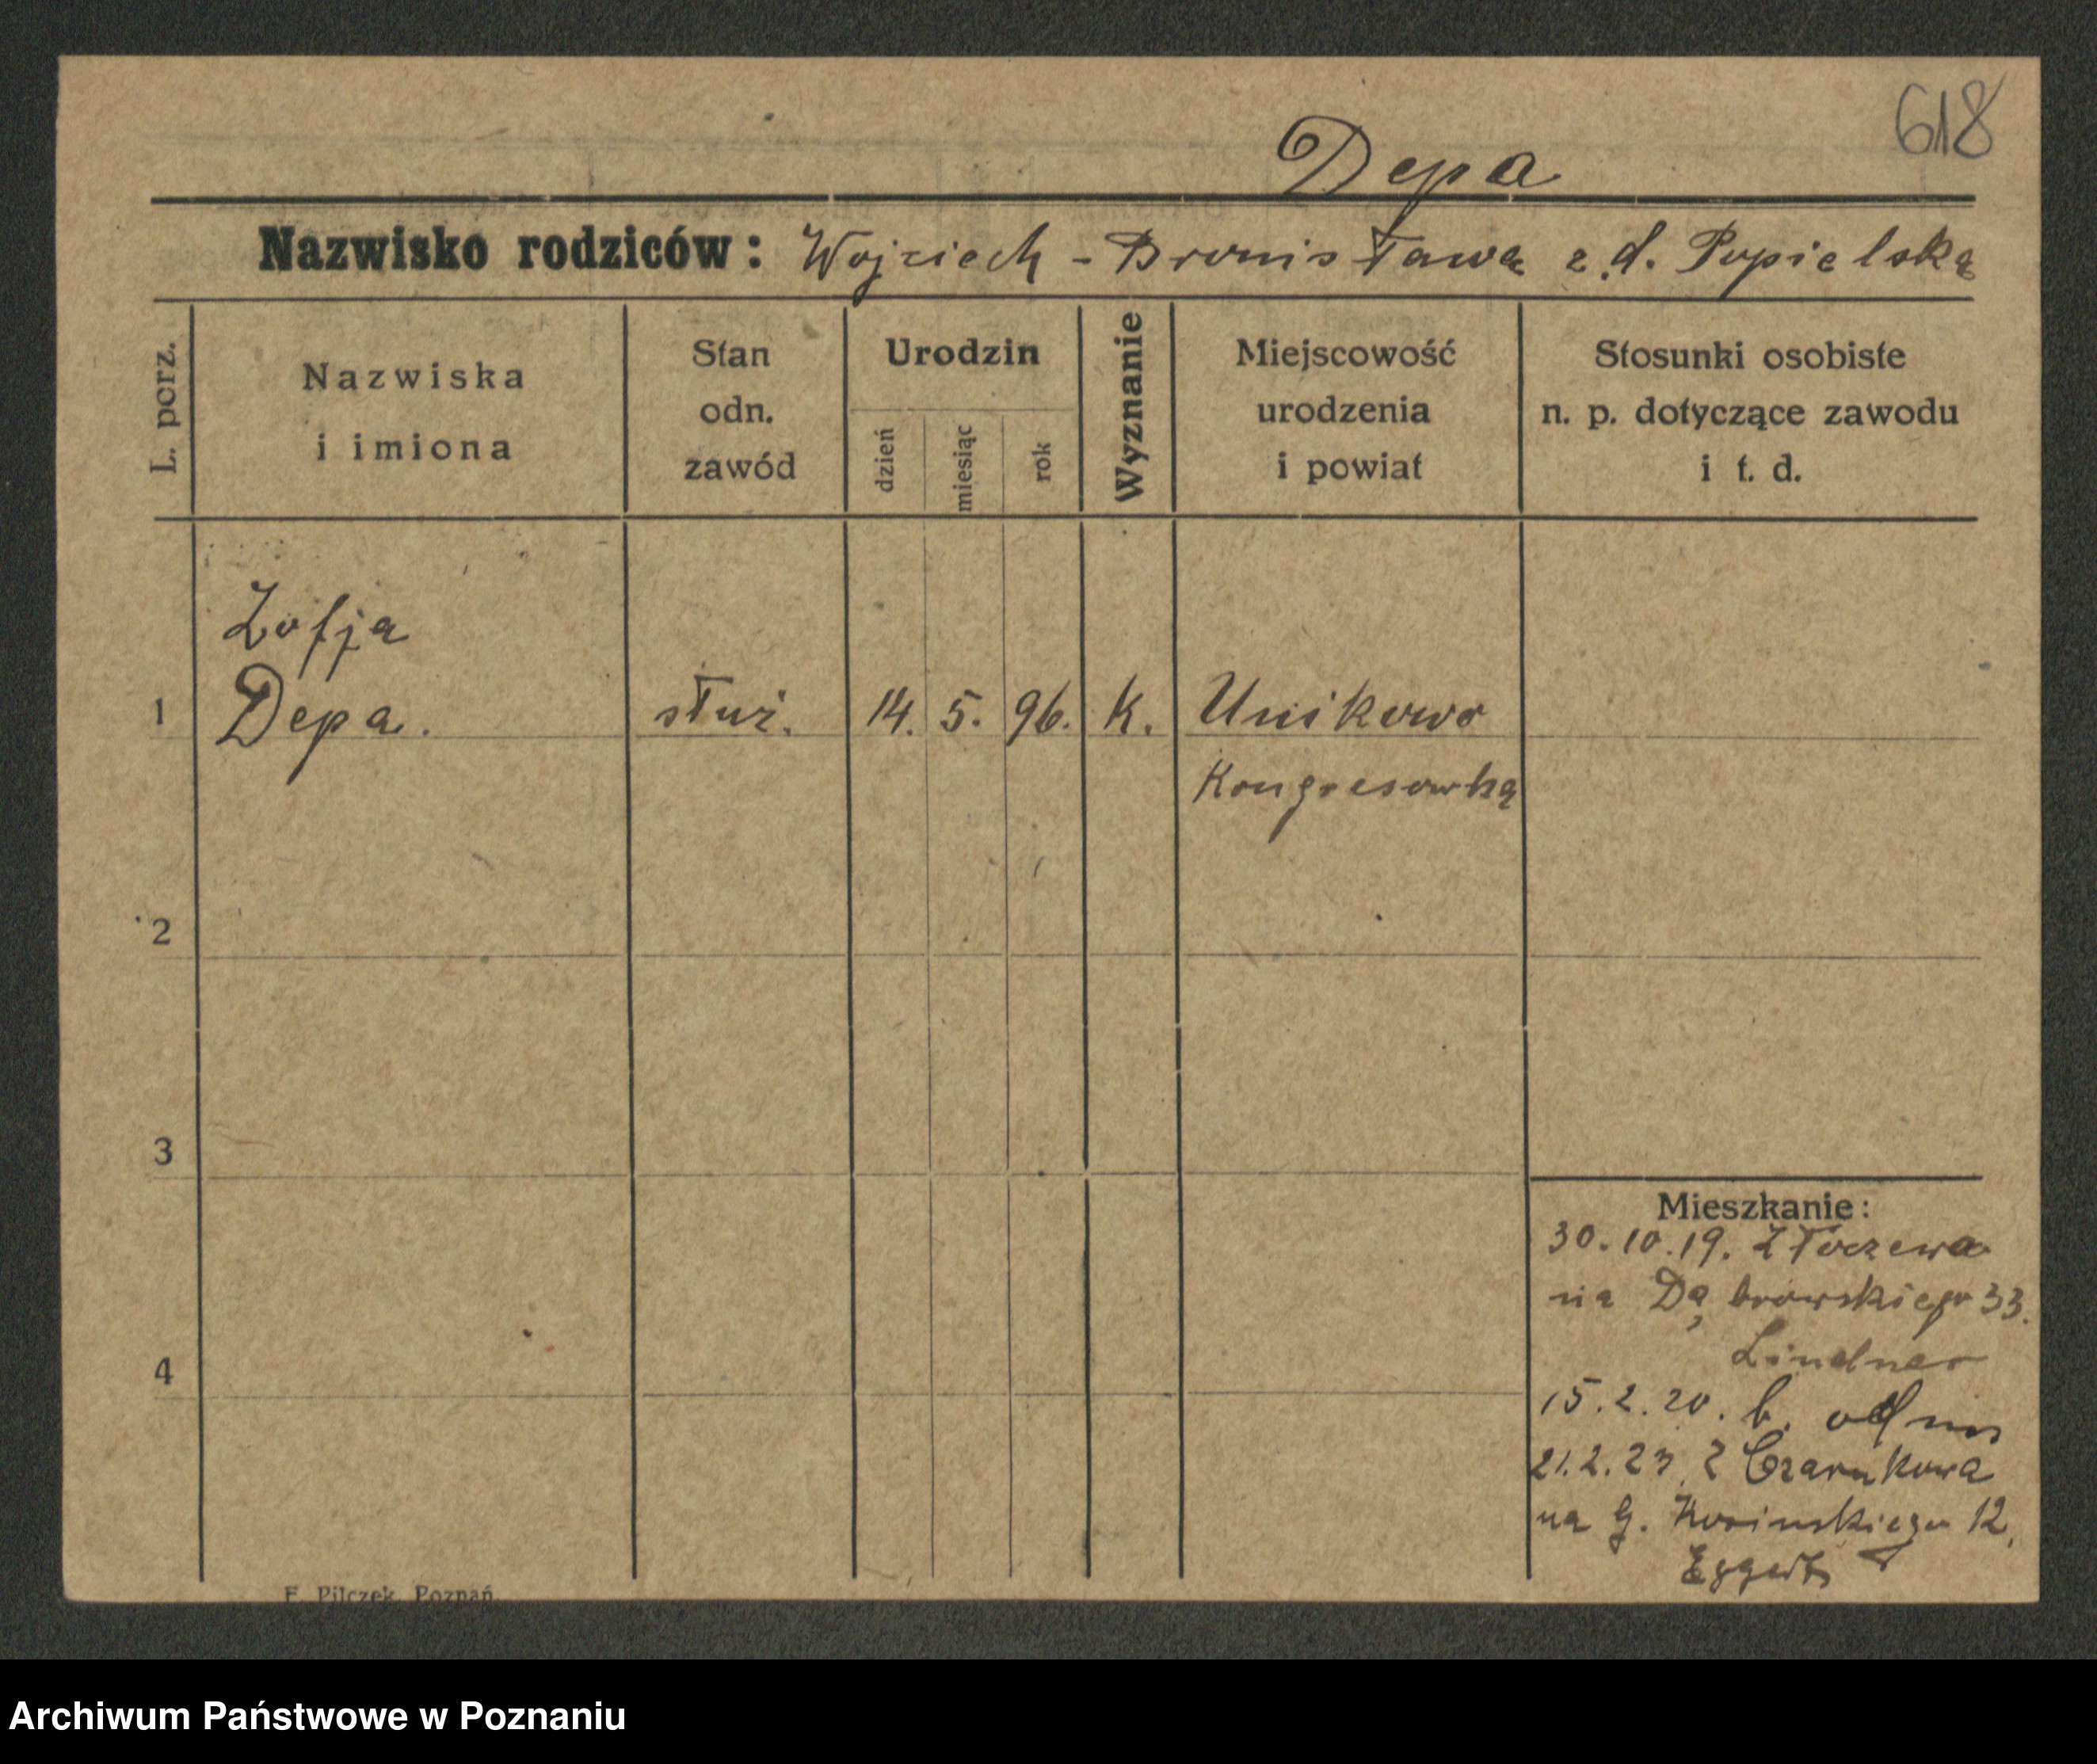 618
Depa
Nazwisko rodziców: Wojciech - Bronisława z d. Popielska
L. porz.
Nazwiska
i imiona
Stan
odn.
zawód
Urodzin
dzień
miesiąc
rok
Wyznanie
Miejscowość
urodzenia
i powiat
Stosunki osobiste
n. p. dotyczące zawodu
i t. d.
Zofja
1 Depa. służ. 14. 5. 96. K. Unikowo
Kongresowka
2
3
4
Mieszkanie:
30.10.19. Złoczewa
na Dąbrowskiego 33.
Lindner
15.2.20. b. odm
21.2.23 z Czarnkowa
na G. Kosinskiego 12.
F. Pilczek, Poznań.
Archiwum Państwowe w Poznaniu